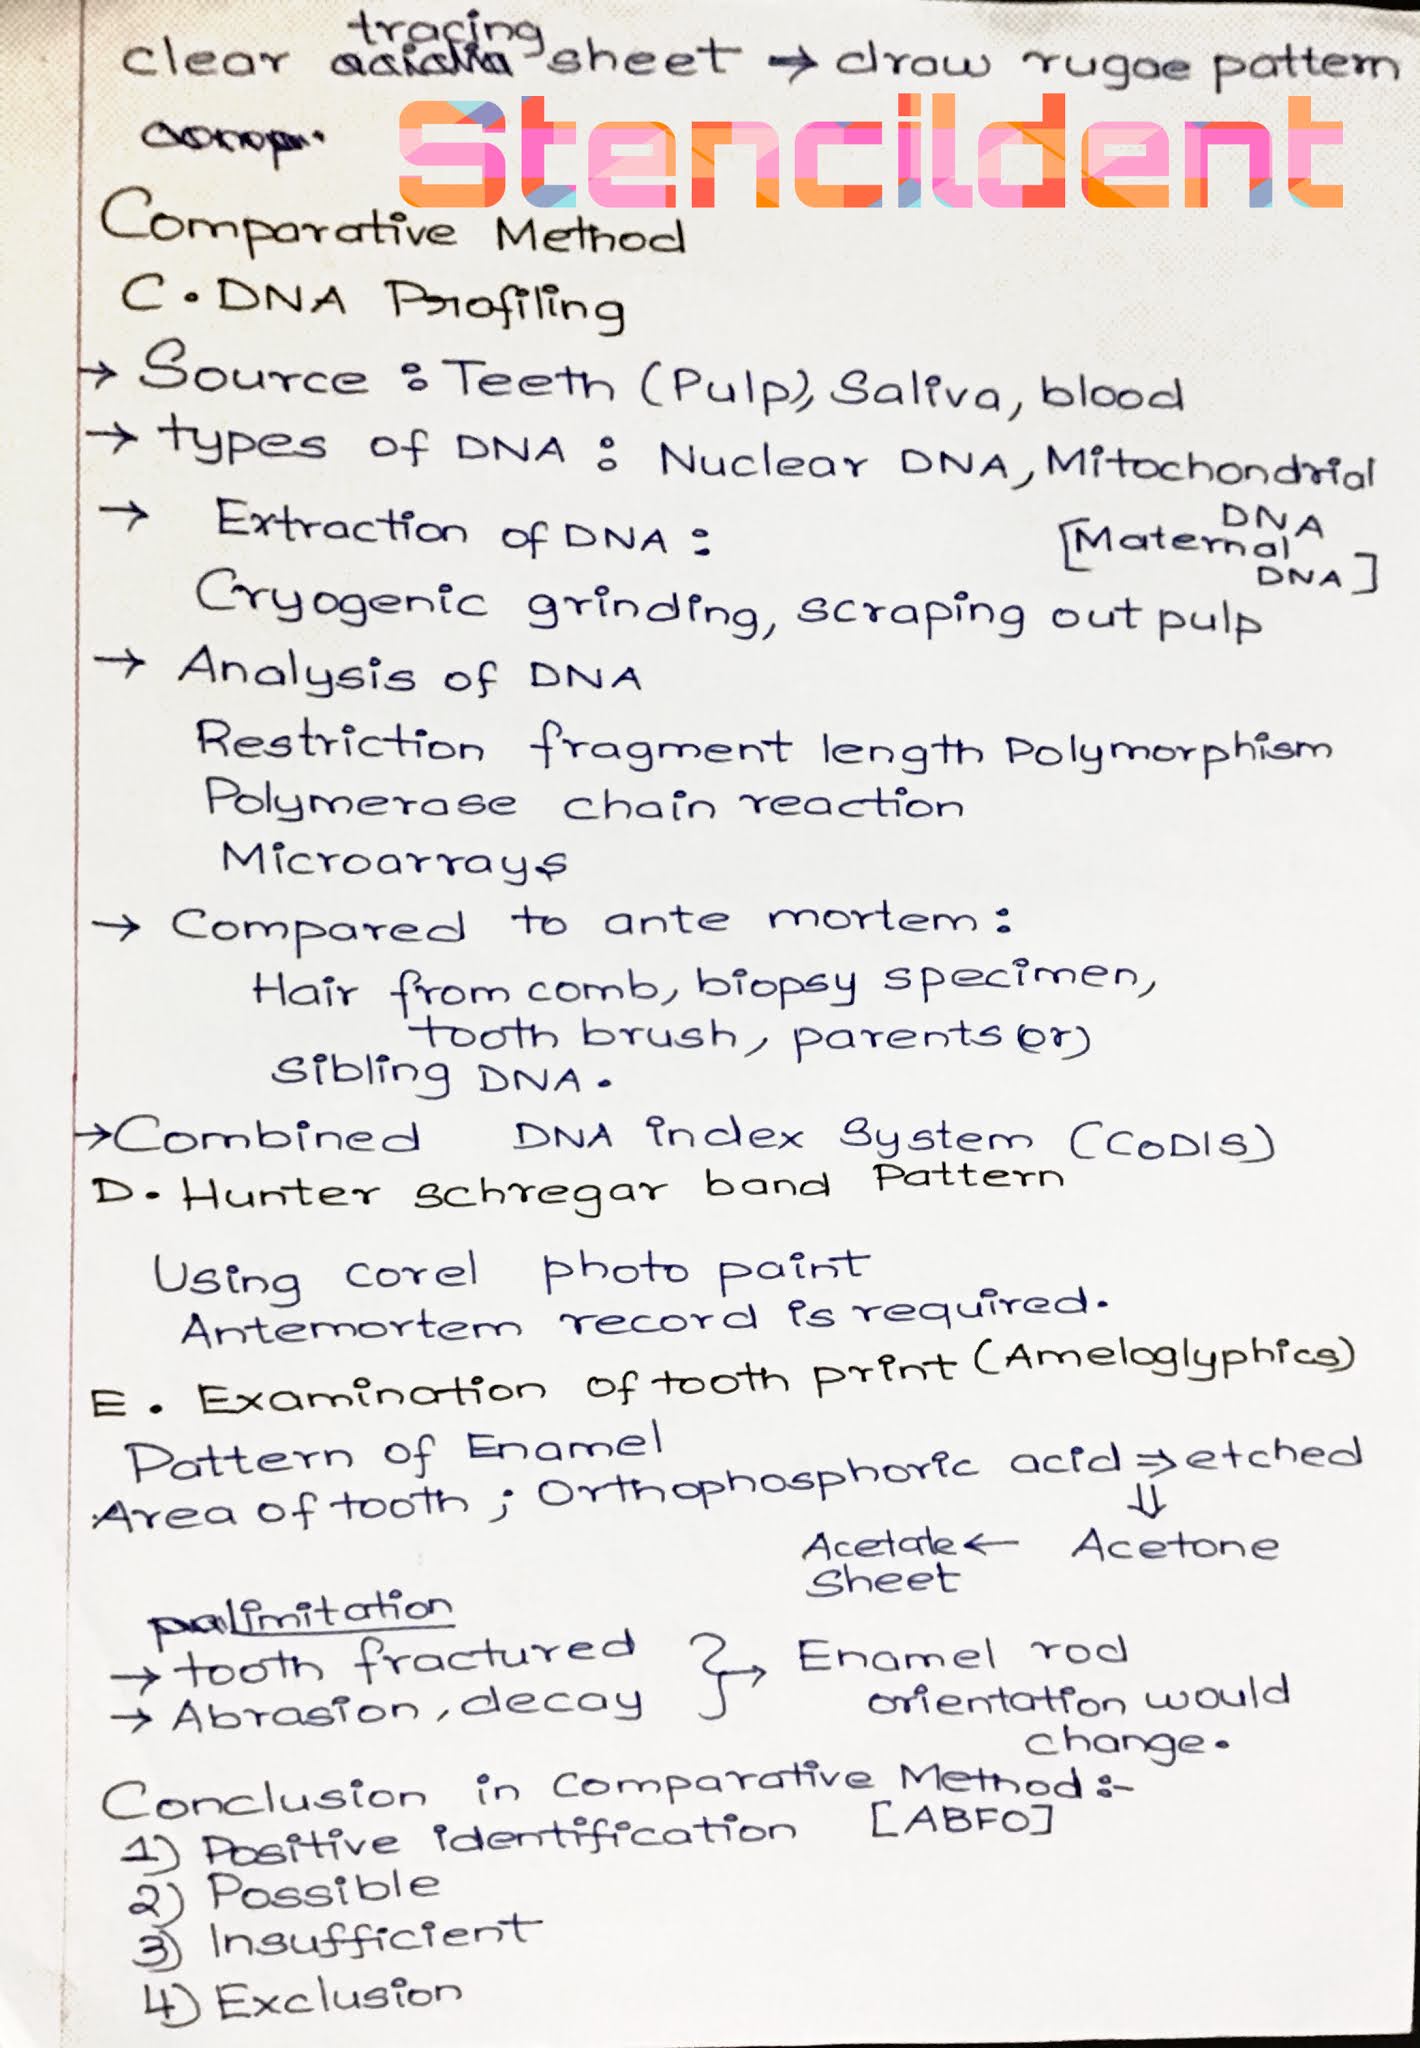 tracing
clear sheet → draw rugae pattern
Stencildent
Comparative Method
C. DNA Profiling
→ Source : Teeth (Pulp), Saliva, blood
→ types of DNA : Nuclear DNA, Mitochondrial
DNA
→ Extraction of DNA :
[Maternal
DNA]
Cryogenic grinding, scraping out pulp
→ Analysis of DNA
Restriction fragment length Polymorphism
Polymerase chain reaction
Microarrays
→ Compared to ante mortem :
Hair from comb, biopsy specimen,
tooth brush, parents (or)
Sibling DNA.
→ Combined DNA index System (CODIS)
D. Hunter schregar band Pattern
Using corel photo paint
Antemortem record is required.
E. Examination of tooth print (Ameloglyphics)
Pattern of Enamel
Area of tooth ; Orthophosphoric acid ⇒ etched
⇓
Acetate ← Acetone
Sheet
limitation
→ tooth fractured } → Enamel rod
→ Abrasion, decay orientation would
change.
Conclusion in comparative Method :-
1) Positive identification [ABFO]
2) Possible
3) Insufficient
4) Exclusion